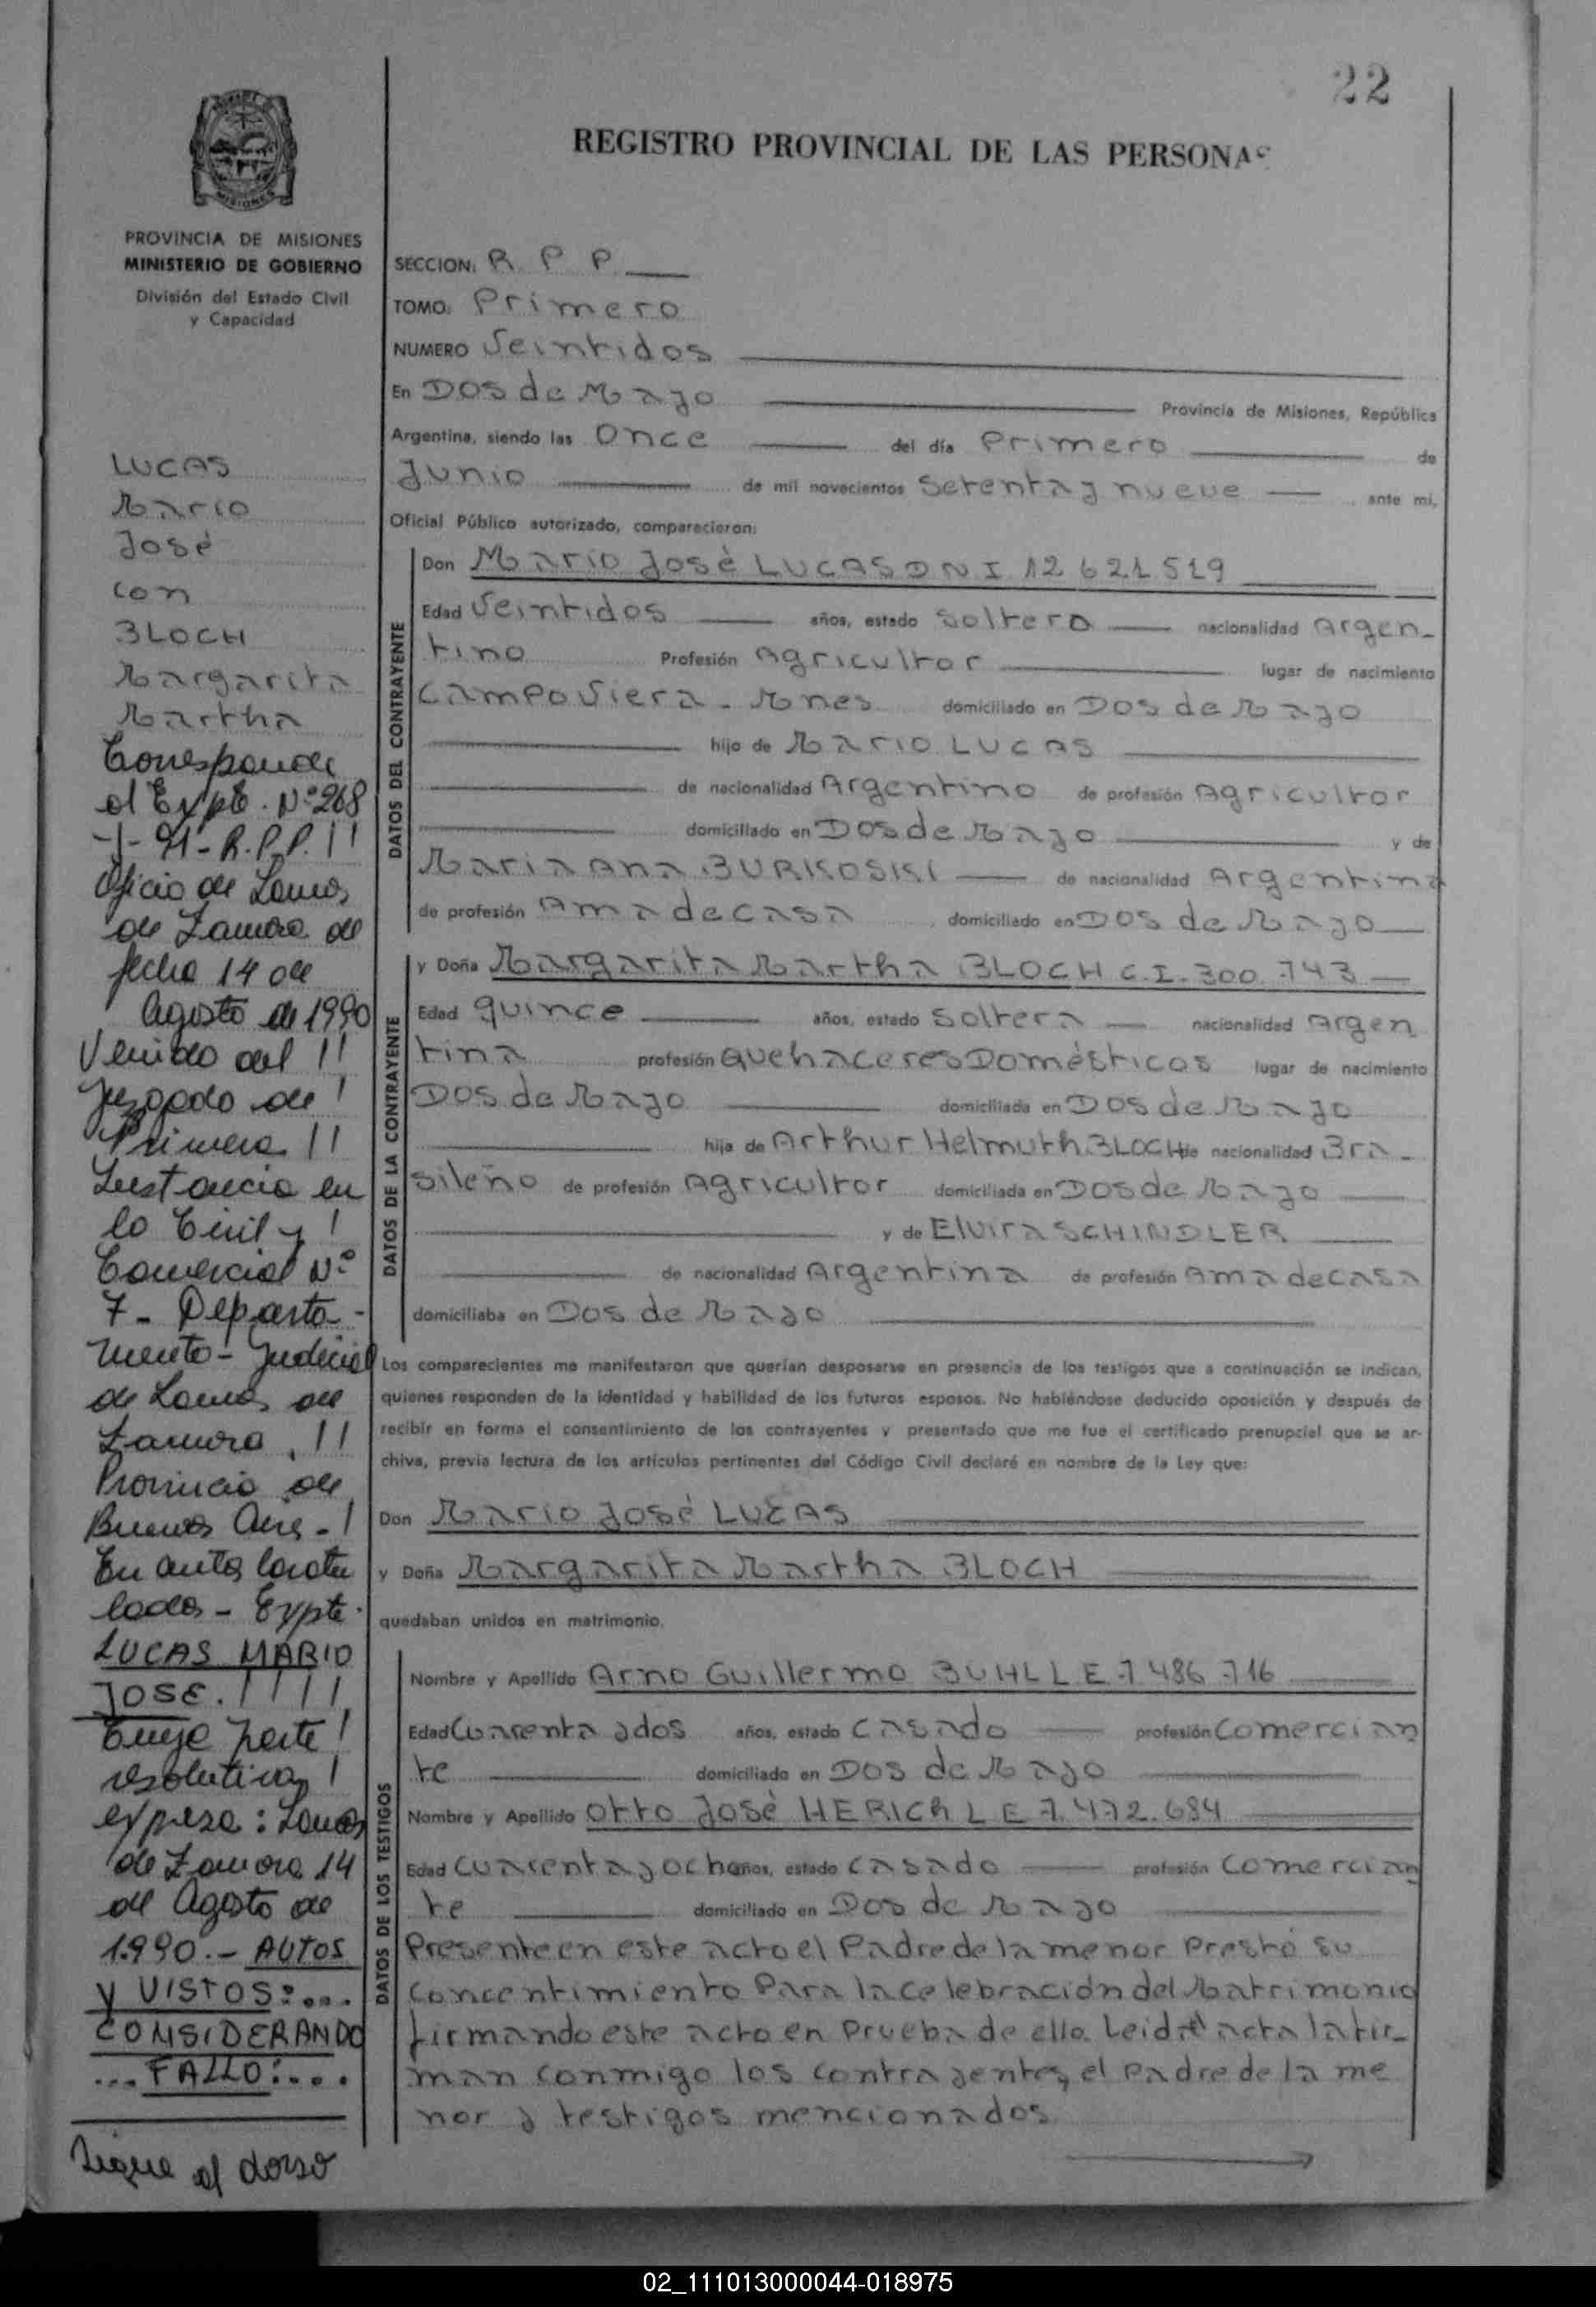 22
REGISTRO PROVINCIAL DE LAS PERSONAS
MISIONES
PROVINCIA DE MISIONES
MINISTERIO DE GOBIERNO
División del Estado Civil
y Capacidad
LUCAS
Mario
José
con
BLOCH
Margarita
Martha
Corresponde
al Expte. Nº 268
-I- 91- R.P.P. !!
Oficio de Lomas
de Zamora de
fecha 14 de
Agosto de 1990
Venido del !!
Juzgado de !
Primera !!
Instancia en
lo Civil y !
Comercial Nº
7 - Departa-
mento - Judicial
de Lomas de
Zamora, !!
Provincia de
Buenos Aires - !
En autos caratu
lados - Expte.
LUCAS MARIO
JOSE. !!!!
Cuya parte !
resolutiva, !
expresa: Lomas
de Zamora 14
de Agosto de
1.990.- AUTOS
y VISTOS:...
CONSIDERANDO
... FALLO:...
Sigue al dorso
SECCION: R P P
TOMO: Primero
NUMERO Veintidos
En DOS de Mayo Provincia de Misiones, República
Argentina, siendo las Once del día Primero de
Junio de mil novecientos Setenta y nueve ante mi,
Oficial Público autorizado, comparecieron:
DATOS DEL CONTRAYENTE
Don Mario José LUCAS DNI 12 621 519
Edad Veintidos años, estado Soltero nacionalidad Argen-
tino Profesión Agricultor lugar de nacimiento
Campo Viera - Mnes domiciliado en DOS de Mayo
hijo de Mario LUCAS
de nacionalidad Argentino de profesión Agricultor
domiciliado en DOS de Mayo y de
Maria Ana BURKOSKI de nacionalidad Argentina
de profesión Ama de casa domiciliado en DOS de Mayo
DATOS DE LA CONTRAYENTE
y Doña Margarita Martha BLOCH C.I. 300.743
Edad quince años, estado Soltera nacionalidad Argen
tina profesión Quehaceres Domésticos lugar de nacimiento
DOS de Mayo domiciliada en DOS de Mayo
hija de Arthur Helmuth BLOCH de nacionalidad Bra-
sileño de profesión Agricultor domiciliada en DOS de Mayo
y de Elvira SCHINDLER
de nacionalidad Argentina de profesión Ama de casa
domiciliaba en DOS de Mayo
Los comparecientes me manifestaron que querían desposarse en presencia de los testigos que a continuación se indican,
quienes responden de la identidad y habilidad de los futuros esposos. No habiéndose deducido oposición y después de
recibir en forma el consentimiento de los contrayentes y presentado que me fue el certificado prenupcial que se ar-
chiva, previa lectura de los artículos pertinentes del Código Civil declaré en nombre de la Ley que:
Don Mario José LUCAS
y Doña Margarita Martha BLOCH
quedaban unidos en matrimonio.
DATOS DE LOS TESTIGOS
Nombre y Apellido Arno Guillermo BUHL L E 7 486 716
Edad Cuarenta y dos años, estado Casado profesión Comercian
te domiciliado en DOS de Mayo
Nombre y Apellido Otto José HERICH L E 7.472.684
Edad Cuarenta y ocho años, estado Casado profesión Comercian
te domiciliado en DOS de Mayo
Presente en este acto el Padre de la menor Prestó su
Concentimiento Para la celebración del Matrimonio
firmando este acto en Prueba de ello. Leida el acta la fir-
man conmigo los contrayentes, el Padre de la me
nor y testigos mencionados.
02_111013000044-018975